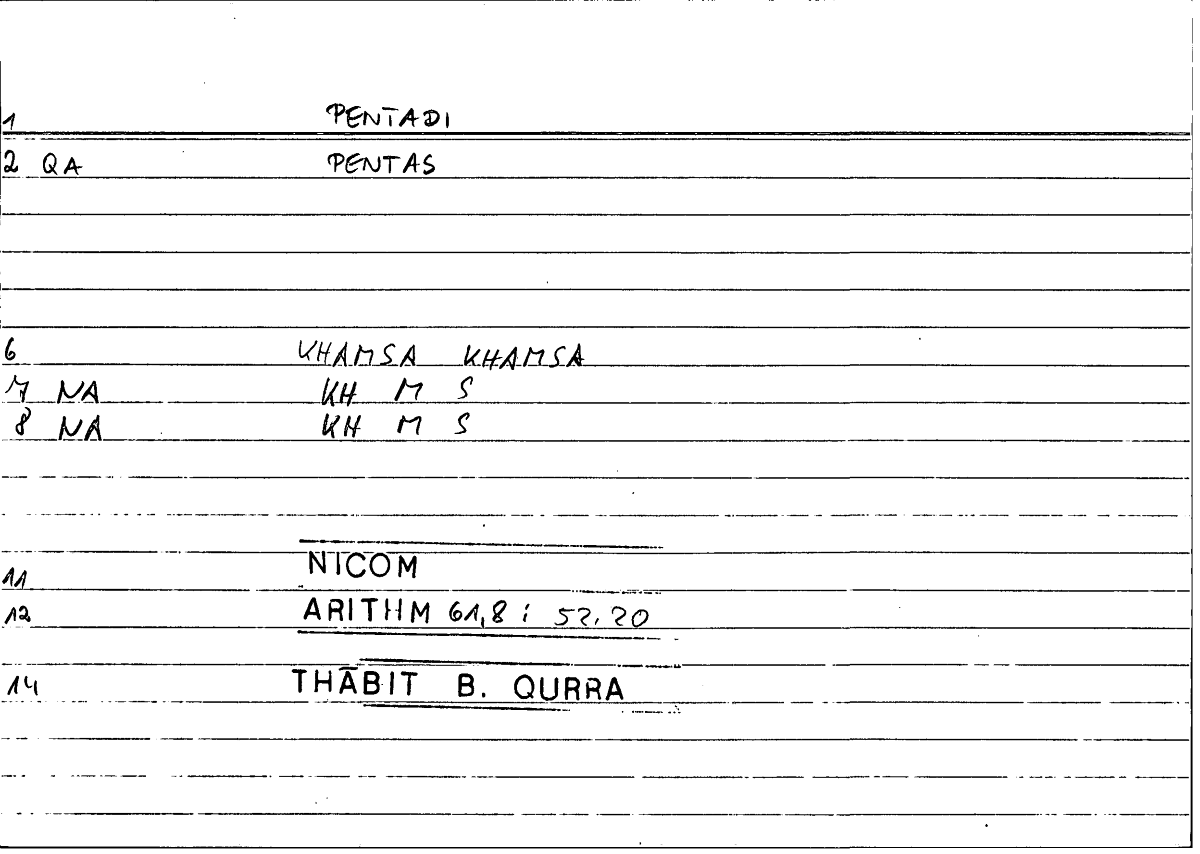 1 PENTADI
2 QA PENTAS
6 KHAMSA KHAMSA
7 NA KH M S
8 NA KH M S
NICOM
11
12 ARITHM 61,8 ; 52,20
14 THĀBIT B. QURRA